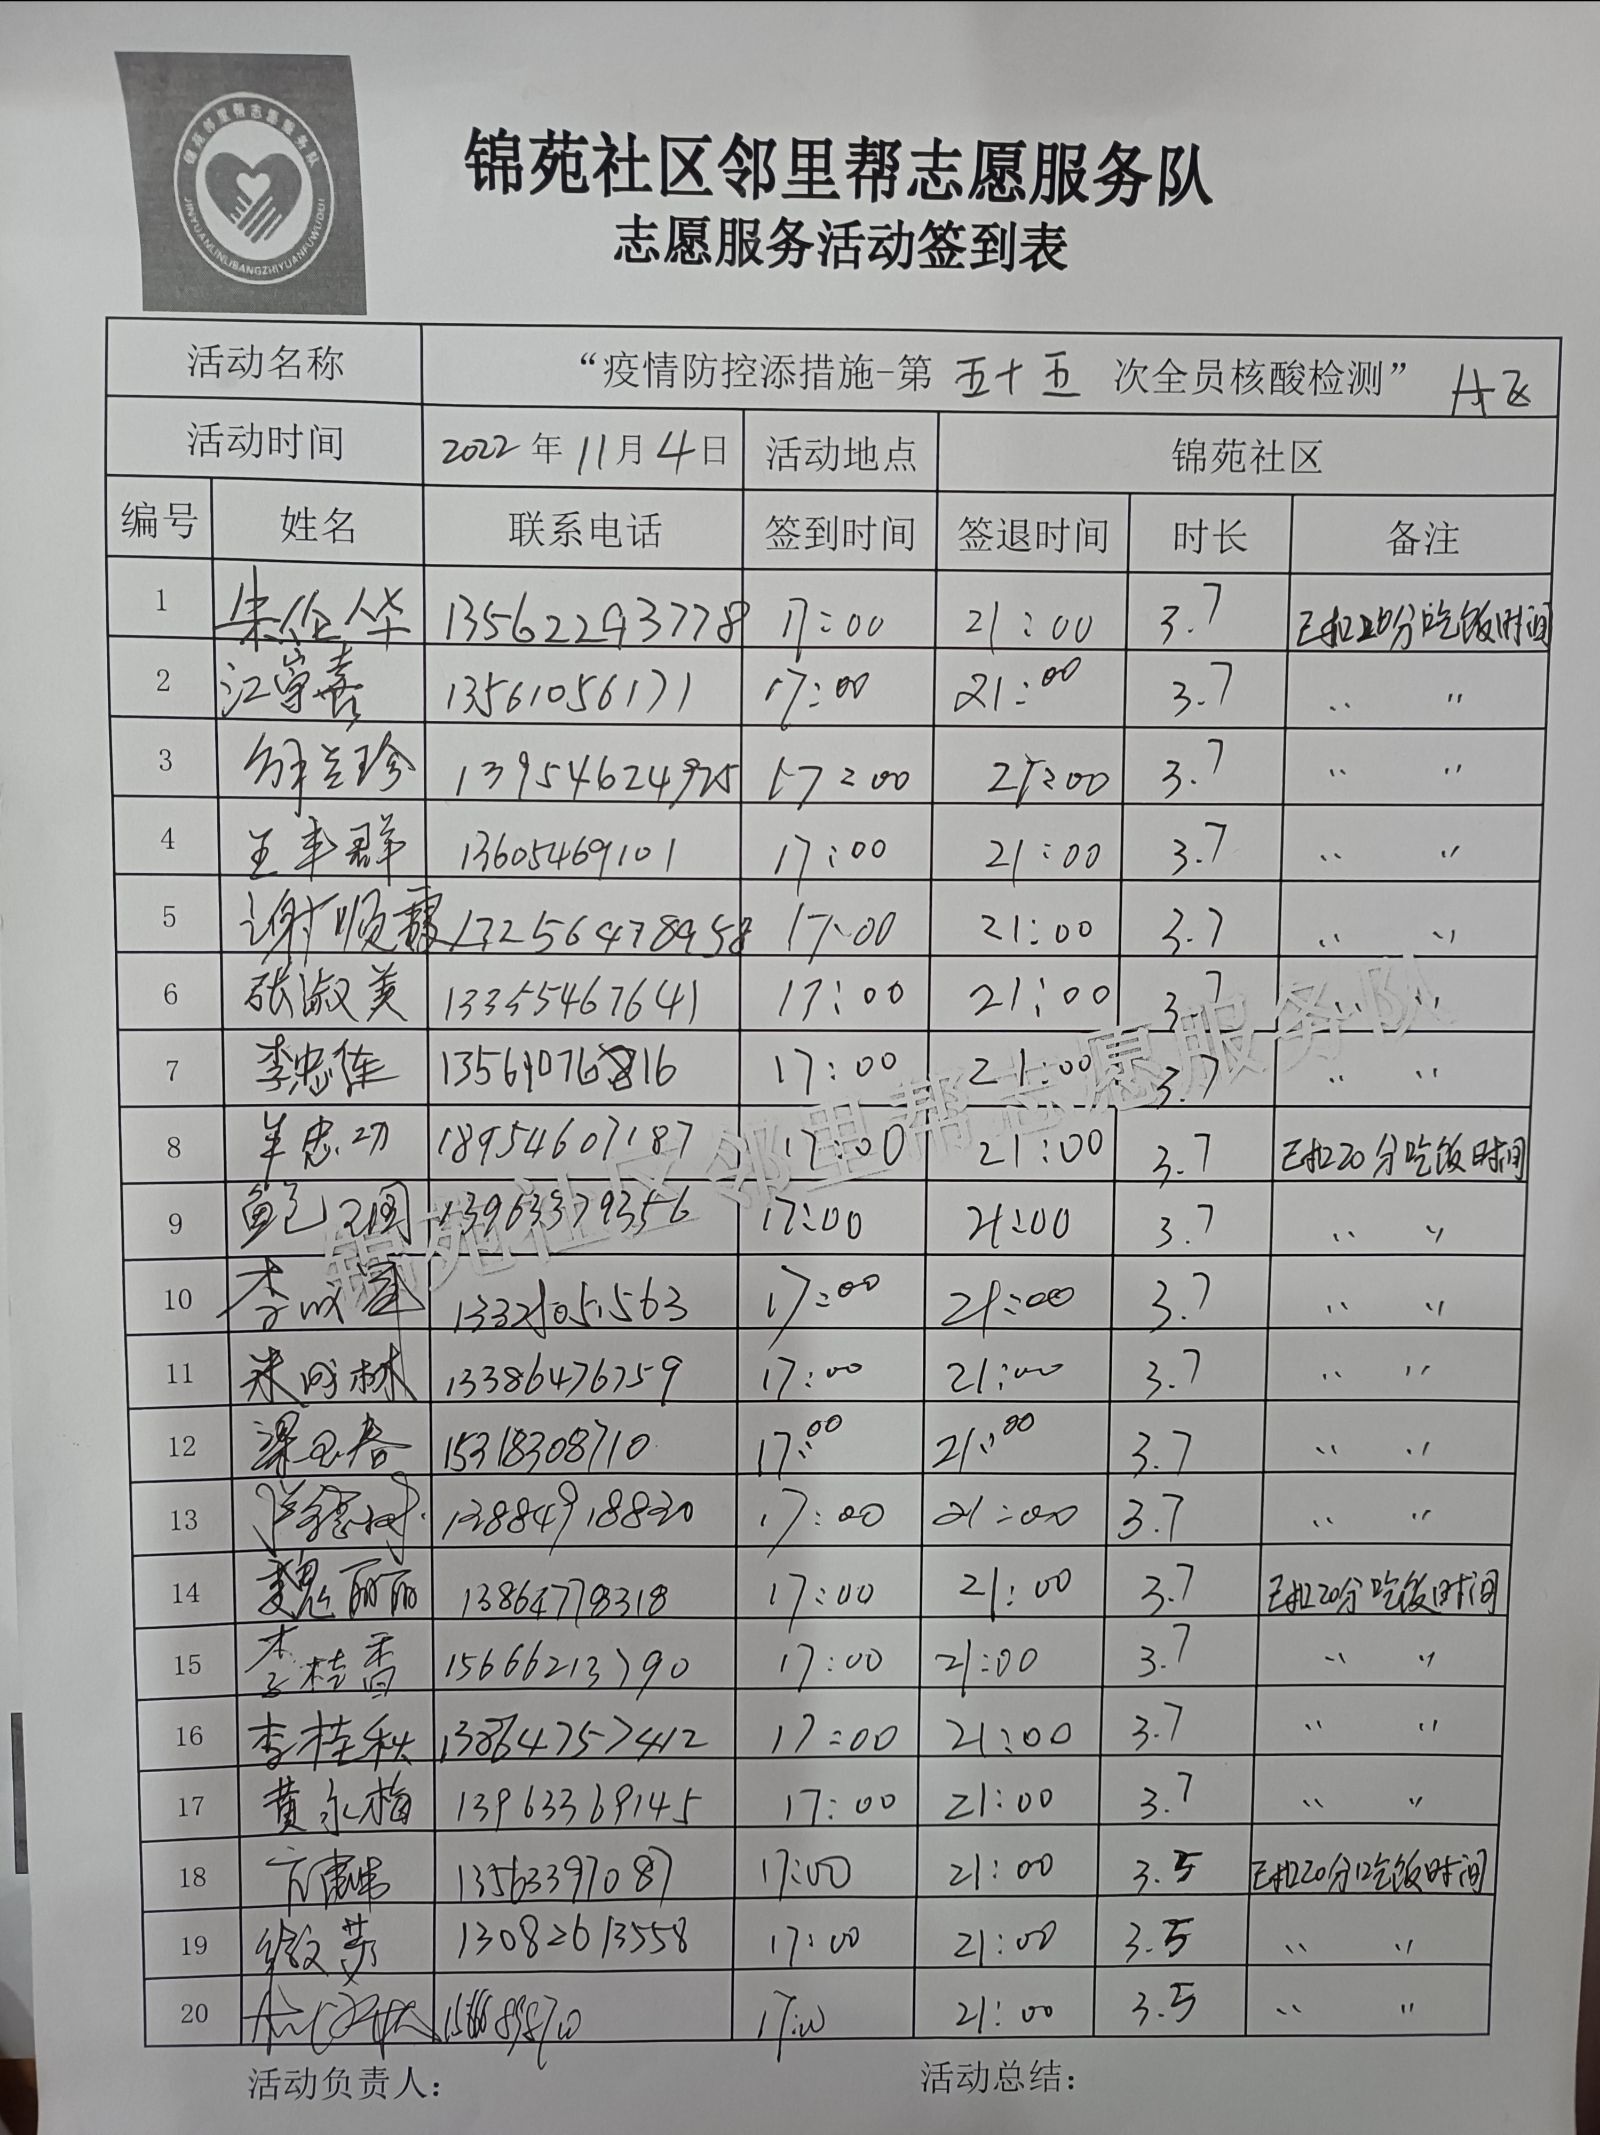 锦苑邻里帮志愿服务队
JINYUANLINLIBANGZHIYUANFUWUDUI
锦苑社区邻里帮志愿服务队
志愿服务活动签到表
活动名称 “疫情防控添措施-第 五十五 次全员核酸检测” 廾区
活动时间 2022年11月4日 活动地点 锦苑社区
编号 姓名 联系电话 签到时间 签退时间 时长 备注
1 朱伦华 135622937778 17:00 21:00 3.7 已扣20分吃饭时间
2 13561056171 17:00 21:00 3.7 〃 〃
3 13954624925 17:00 21:00 3.7 〃 〃
4 王丰群 13605469101 17:00 21:00 3.7 〃 〃
5 谢顺霞 17:00 21:00 3.7 〃 〃
6 张淑美 13355467641 17:00 21:00 3.7 〃 〃
7 17:00 21:00 3.7 〃 〃
8 忠功 18954607187 17:00 21:00 3.7 已扣20分吃饭时间
9 鲍卫国 13963379356 17:00 21:00 3.7 〃 〃
10 17:00 21:00 3.7 〃 〃
11 朱成林 13386476759 17:00 21:00 3.7 〃 〃
12 梁玉春 15318308710 17:00 21:00 3.7 〃 〃
13 17:00 21:00 3.7 〃 〃
14 魏丽丽 13864778318 17:00 21:00 3.7 已扣20分吃饭时间
15 李桂香 15666213790 17:00 21:00 3.7 〃 〃
16 李桂秋 13864757412 17:00 21:00 3.7 〃 〃
17 黄永梅 13963369145 17:00 21:00 3.7 〃 〃
18 13563397087 17:00 21:00 3.5 已扣20分吃饭时间
19 徐文芳 13082613558 17:00 21:00 3.5 〃 〃
20 17:00 21:00 3.5 〃 〃
锦苑社区邻里帮志愿服务队
活动负责人： 活动总结：